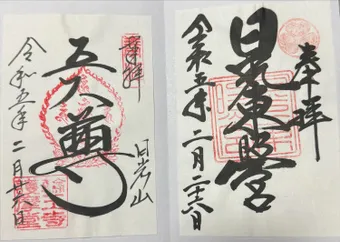 奉拝
日光東照宮
令和五年二月二十六日
奉拝
日光山
五大尊
令和五年二月廿六日